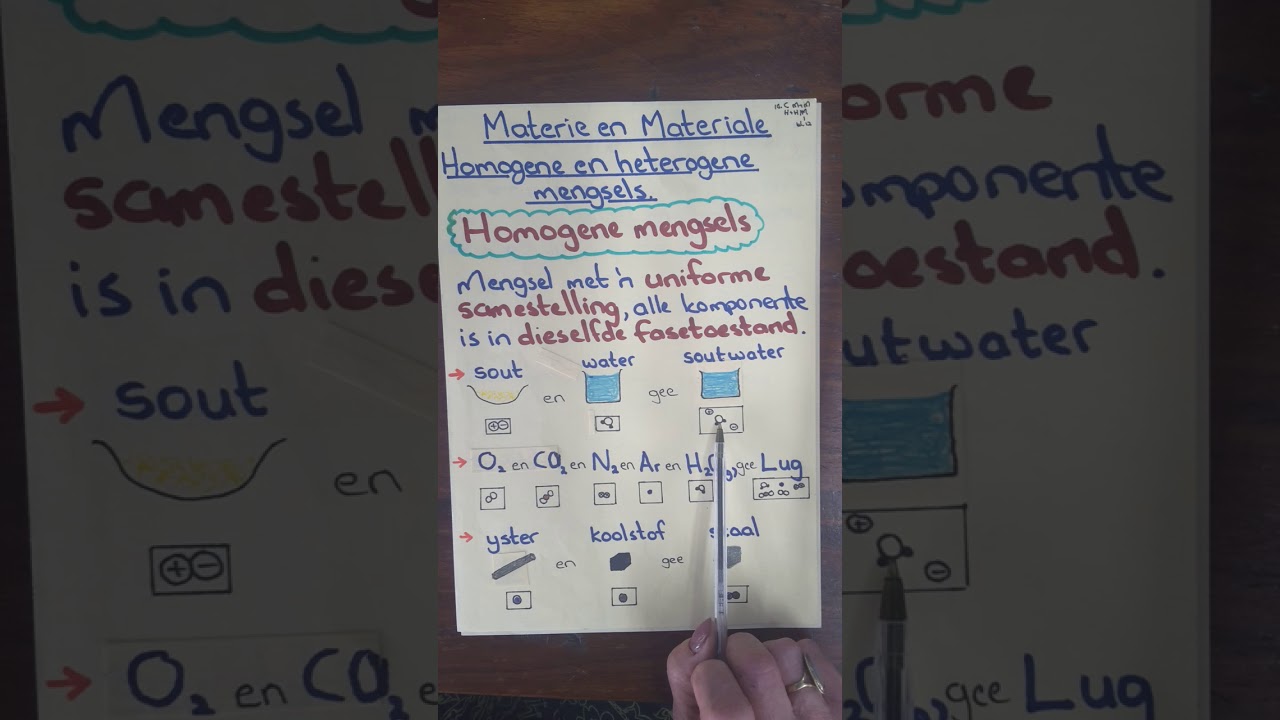 Materie en Materiale
Homogene en heterogene
mengsels.
Homogene mengsels
Mengsel met 'n uniforme
samestelling, alle komponente
is in dieselfde fasetoestand.
→ sout en water gee soutwater
→ O₂ en CO₂ en N₂ en Ar en H₂ gee Lug
→ yster en koolstof gee